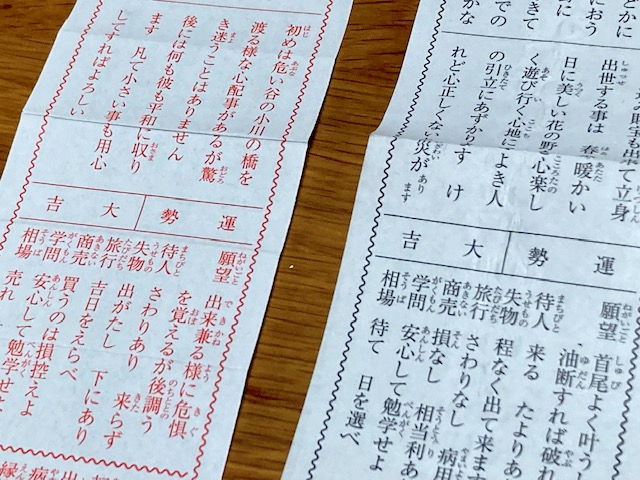 初めは危い谷の小川の橋を
渡る様な心配事があるが驚
き迷うことはありません
後には何も彼も平和に収り
ます 凡て小さい事も用心
してすればよろしい
運勢 大吉
願望 出来兼る様に危惧
を覚えるが後調う
待人 さわりあり 来らず
失物 出がたし 下にあり
旅行 吉日をえらべ
商売 買うのは損控えよ
学問 安心して勉学せよ
相場 売れ
出て立身
出世する事は 春暖かい
日に美しい花の野心楽し
く遊び行く心地によき人
の引立にあずかります け
れど心正しくない災があり
ます
運勢 大吉
願望 首尾よく叶う
油断すれば破れ
待人 来る たよりあ
失物 程なく出て来ます
旅行 さわりなし
商売 損なし 相当利あ
学問 安心して勉学せよ
相場 待て 日を選べ